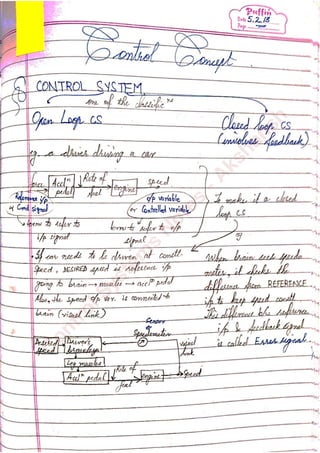 Puffin
Date 5.2.18
Page
Control Concept
CONTROL SYSTEM
one of the classific^ns
Open Loop CS
Closed loop CS
(involves feedback)
eg. a driver driving a car
force
Accl^n pedal
Rate of fuel
engine
speed
Reference i/p
or Cmd signal
o/p variable
or Controlled variable
To make it a closed
loop CS
• term to refer to
i/p signal
term to refer to o/p
signal
eg
• If car needs to be driven at constt.
speed, DESIRED speed is reference i/p
going to brain → muscles → accl^n pedal
Also, the speed o/p var. is connected to
brain (visual link)
When brain sees speedo
meter, it checks the
difference from REFERENCE
i/p to keep speed constt
This difference b/w reference
i/p & feedback signal
is called Error signal.
Sensor
or
Speedometer
Desired
speed
Driver's
visual
link
Leg muscles
Accl^n pedal
Rate of
fuel
engine
speed